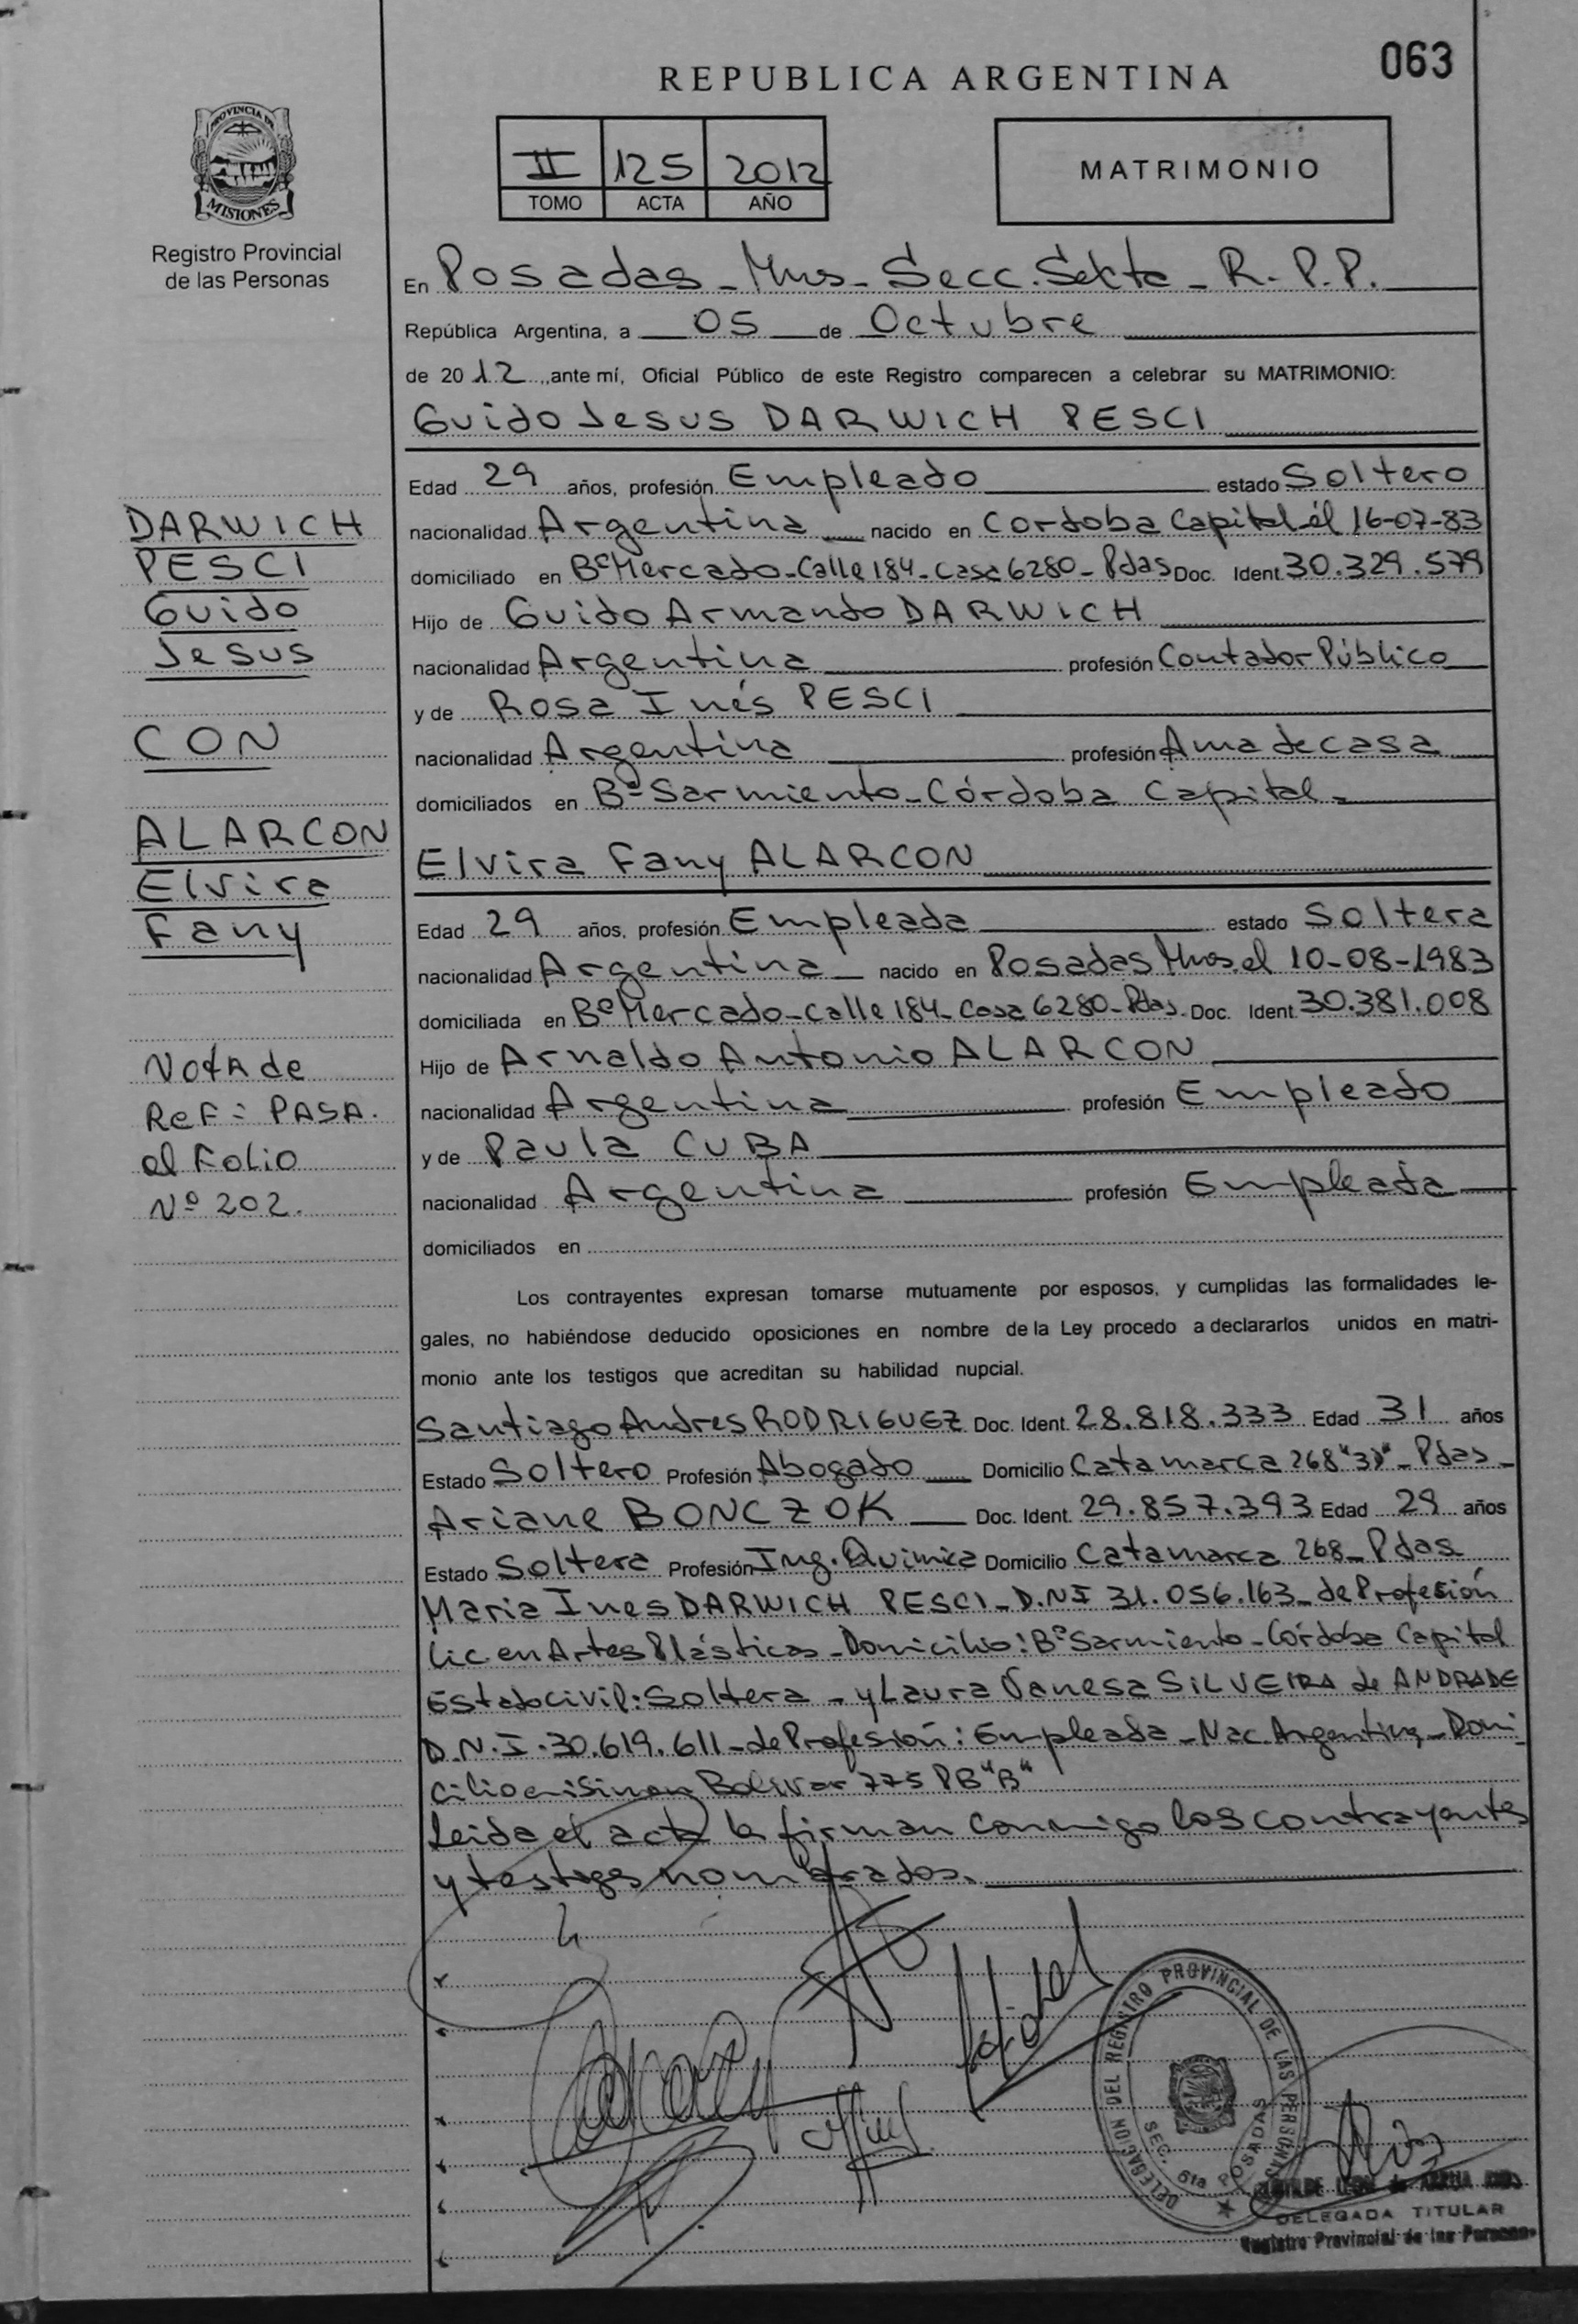 063
REPUBLICA ARGENTINA
PROVINCIA DE
MISIONES
Registro Provincial
de las Personas
II 125 2012
TOMO ACTA AÑO
MATRIMONIO
En Posadas - Mnes - Secc. Sexta - R.P.P.
República Argentina, a 05 de Octubre
de 2012, ante mí, Oficial Público de este Registro comparecen a celebrar su MATRIMONIO:
Guido Jesus DARWICH PESCI
Edad 29 años, profesión Empleado estado Soltero
nacionalidad Argentina nacido en Cordoba Capital el 16-07-83
domiciliado en Bº Mercado - Calle 184 - Casa 6280 - Pdas Doc. Ident. 30.329.579
Hijo de Guido Armando DARWICH
nacionalidad Argentina profesión Contador Público
y de Rosa Inés PESCI
nacionalidad Argentina profesión Ama de casa
domiciliados en Bº Sarmiento - Córdoba Capital -
Elvira Fany ALARCON
Edad 29 años, profesión Empleada estado Soltera
nacionalidad Argentina nacido en Posadas Mnes. el 10-08-1983
domiciliada en Bº Mercado - Calle 184 - Casa 6280 - Pdas. Doc. Ident. 30.381.008
Hijo de Arnaldo Antonio ALARCON
nacionalidad Argentina profesión Empleado
y de Paula CUBA
nacionalidad Argentina profesión Empleada
domiciliados en
DARWICH
PESCI
Guido
Jesus
CON
ALARCON
Elvira
Fany
Nota de
Ref: PASA.
al Folio
Nº 202.
Los contrayentes expresan tomarse mutuamente por esposos, y cumplidas las formalidades le-
gales, no habiéndose deducido oposiciones en nombre de la Ley procedo a declararlos unidos en matri-
monio ante los testigos que acreditan su habilidad nupcial.
Santiago Andres RODRIGUEZ Doc. Ident. 28.818.333 Edad 31 años
Estado Soltero Profesión Abogado Domicilio Catamarca 268 "3D" - Pdas -
Ariane BONCZOK Doc. Ident. 29.857.393 Edad 29 años
Estado Soltera Profesión Ing. Quimica Domicilio Catamarca 268 - Pdas
Maria Ines DARWICH PESCI - D.N.I 31.056.163 - de Profesión
Lic. en Artes Plásticas - Domicilio: Bº Sarmiento - Córdoba Capital
Estado civil: Soltera - y Laura Vanesa SILVEIRA de ANDRADE
D.N.I. 30.619.611 - de Profesión: Empleada - Nac. Argentina - Domi
cilio Bolivar 775 PB "B"
Leida el acta la firman conmigo los contrayentes
y testigos nombrados.
DELEGACION DEL REGISTRO PROVINCIAL DE LAS PERSONAS
SEC. 6ta POSADAS
DELEGADA TITULAR
Registro Provincial de las Personas